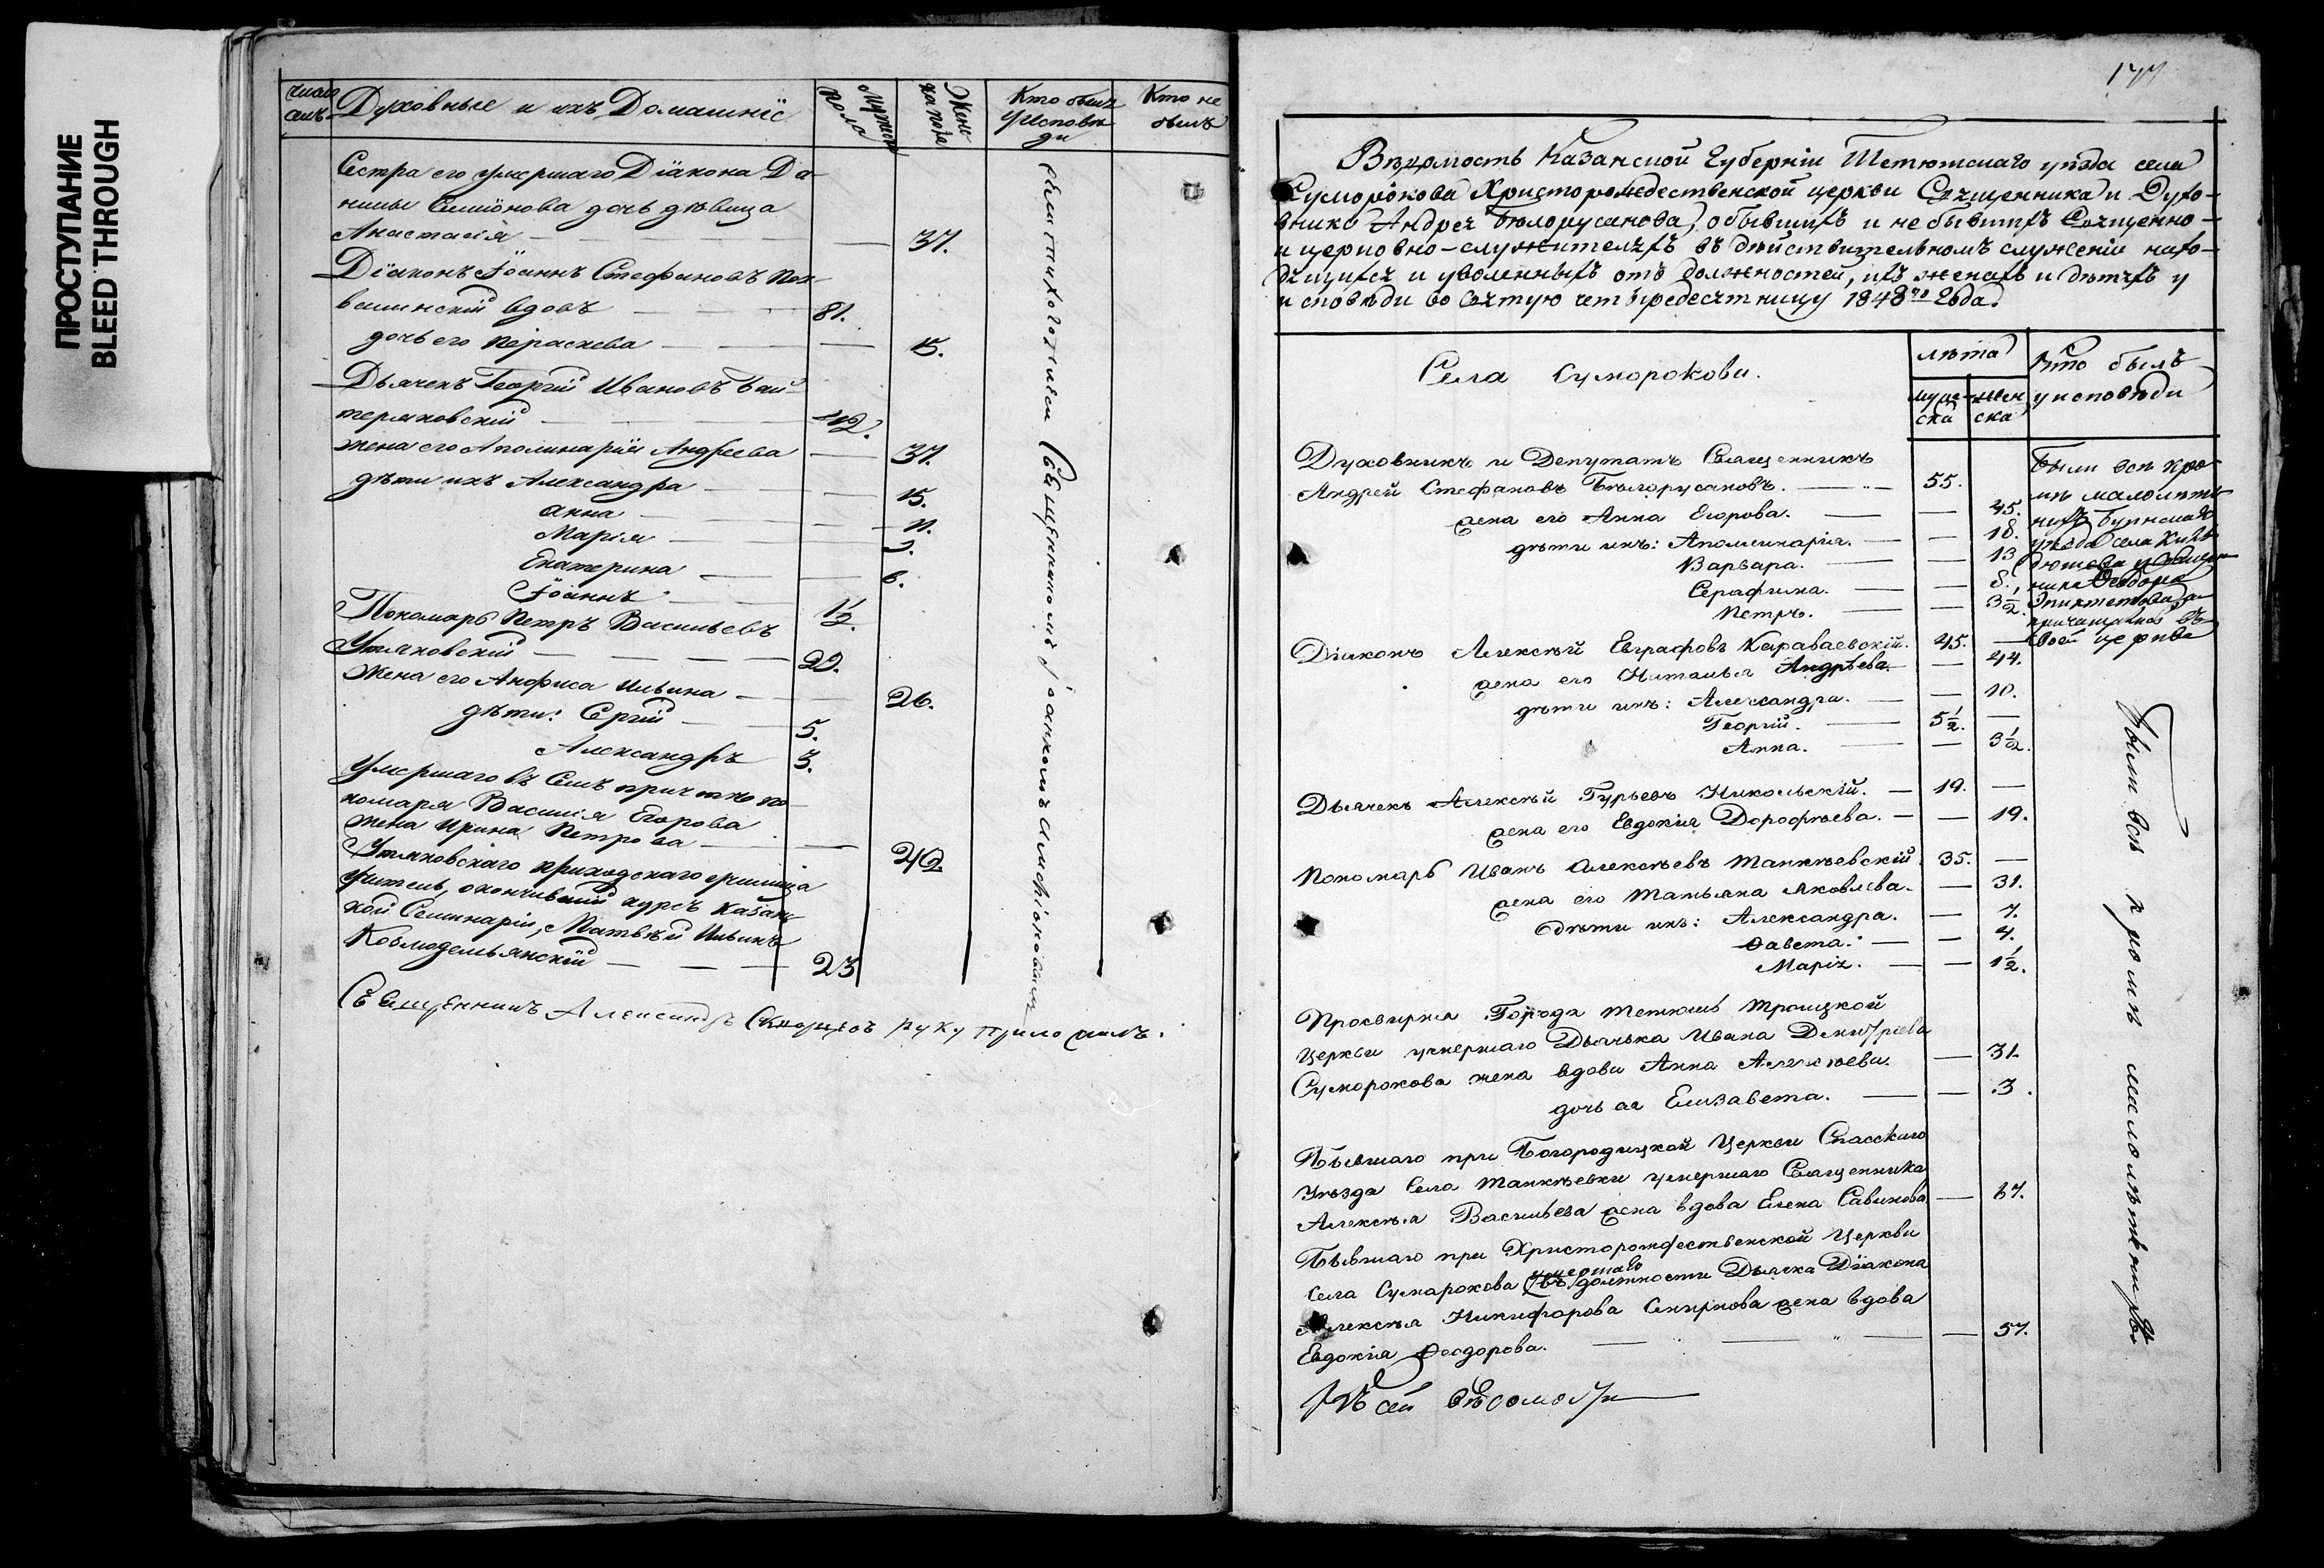 ПРОСТУПАНИЕ
BLEED THROUGH
Духовные и ихъ Домашніе
Мужска пола
Женска пола
Кто былъ
У Исповѣ
ди
Кто не
былъ
Сестра его умершаго Діакона Да-
нилы Симіонова дочь дѣвица
Анастасія — 37.
Діаконъ Іоаннъ Стефановъ
вдовъ — 81.
дочь его Параскева — 15.
Дьячекъ Георгій Ивановъ Бай-
теряковскій — 42.
жена его Аполинарія Андреева — 37.
дѣти ихъ Александра — 15.
Анна — 11.
Марія —
Екатерина — 6.
Іоаннъ — 1½.
Пономарь Петръ Васильевъ
Утяковскій — 29.
Жена его Анфиса Ильина — 26.
дѣти: Сергій — 5.
Александръ 3.
Умершаго въ семъ причтѣ по-
номаря Василія Егорова
жена Ирина Петрова — 42
Утяковскаго приходскаго училища
учитель, окончившій курсъ Казанс-
кой Семинаріи, Матвѣй Ильинъ
Козмодемьянскій — 23
Священникъ Александръ руку приложилъ.
Священникомъ Іоанномъ
177
Вѣдомость Казанской Губерніи Тетюшскаго уѣзда села
Сумарокова Христорождественской церкви Священника и Духо-
вника Андрея Бѣлорусанова, о бывшихъ и не бывшихъ Священно-
и церковно-служителяхъ въ дѣйствительномъ служеніи нахо-
дящихся и уволенныхъ отъ должностей, ихъ женахъ и дѣтяхъ у
исповѣди во святую четыредесятницу 1848го Года.
Села Сумарокова.
лѣта
муже-
ска
жен
ска
Кто былъ
у исповѣди
Духовникъ и Депутатъ Священникъ
Андрей Стефановъ Бѣлорусановъ. — 55.
жена его Анна Егорова. — 45.
дѣти ихъ: Аполлинарія. — 18.
Варвара. — 13
Серафима. — 8.
Петръ. — 3½.
Были всѣ кро-
мѣ малолѣт-
нихъ Буинскаго
уѣзда села
у Священ-
ника Ѳеодора
а
причащались въ
своей церкви
Діаконъ Алексѣй Евграфовъ Караваевскій. 45. —
жена его Наталья Андрѣева. — 44.
дѣти ихъ: Александра. — 10.
Георгій. — 5½. —
Анна. — 3½.
Дьячекъ Алексѣй Гурьевъ Никольскій. — 19. —
жена его Евдокія Дорофѣева. — 19.
Пономарь Иванъ Алексѣевъ Танкѣевскій. 35. —
жена его Татьяна Яковлева. — 31.
дѣти ихъ: Александра. — 7.
Савета. — 4.
Марія. — 1½.
Просвирня Города Тетюшъ Троицкой
Церкви умершаго Дьячька Ивана Димитріева
Сумарокова жена вдова Анна Алексѣева. — 31.
дочь ея Елизавета. — 3.
Бывшаго при Богородицкой Церкви Спасскаго
Уѣзда Села Танкѣевки умершаго Священника
Алексѣя Васильева жена вдова Елена Савинова — 67.
Бывшаго при Христорождественской Церкви
умершаго
Села Сумарокова въ должности Дьячка Діакона
Алексѣя Никифорова Смирнова жена вдова
Евдокія Ѳеодорова. — 57.
Были всѣ кромѣ малолѣтнихъ.
Къ сей Вѣдомости